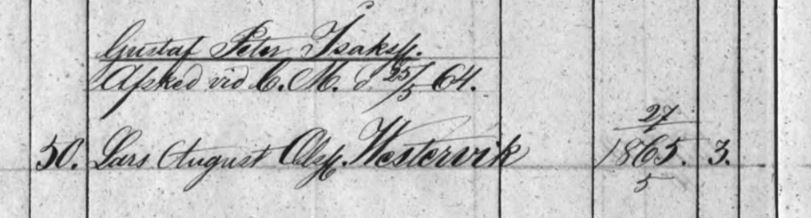 Gustaf Peter Isakss.
Afsked vid C. M. d 25/5 64.
50. Lars August Olss. Westervik 27/1865/5. 3.